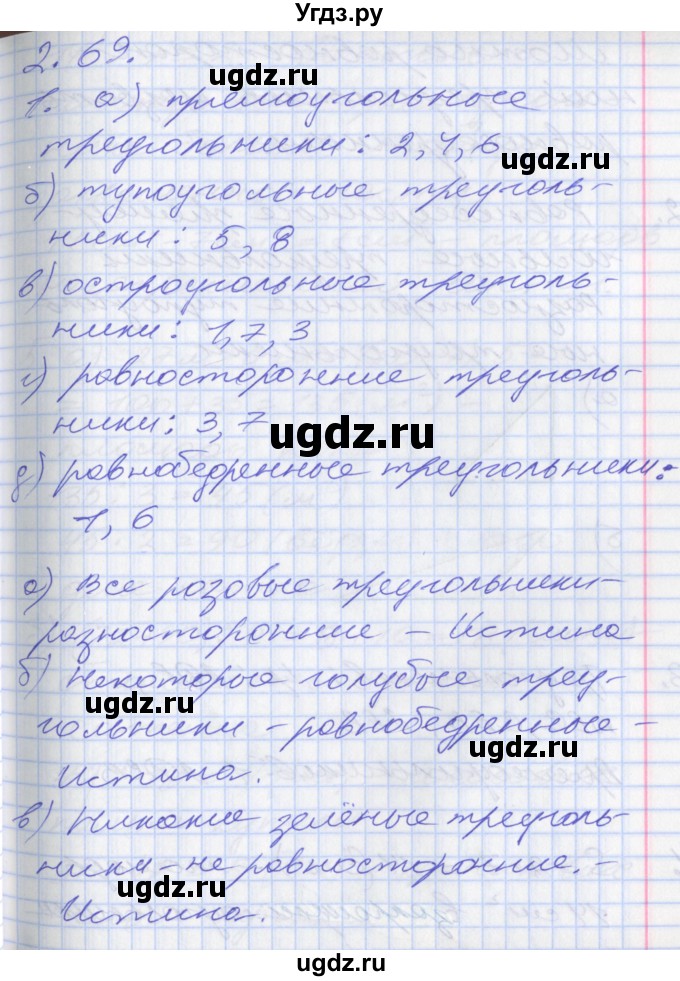 Угдз.ру
2.69.
ugdz.ru
1. а) прямоугольные
треугольники: 2, 4, 6
ugdz.ru
б) тупоугольные треуголь-
ники: 5, 8
в) остроугольные треуголь-
ники: 1, 7, 3
г) равносторонние треуголь-
ники: 3, 7
ugdz.ru
д) равнобедренные треугольники:
1, 6
ugdz.ru
а) Все розовые треугольники-
разносторонние – Истина
б) Некоторые голубые треу-
ugdz.ru
гольники – равнобедренные –
ugdz.ru
Истина.
в) Никакие зелёные треуголь-
ники – не равносторонние. –
ugdz.ru
Истина.
ugdz.ru